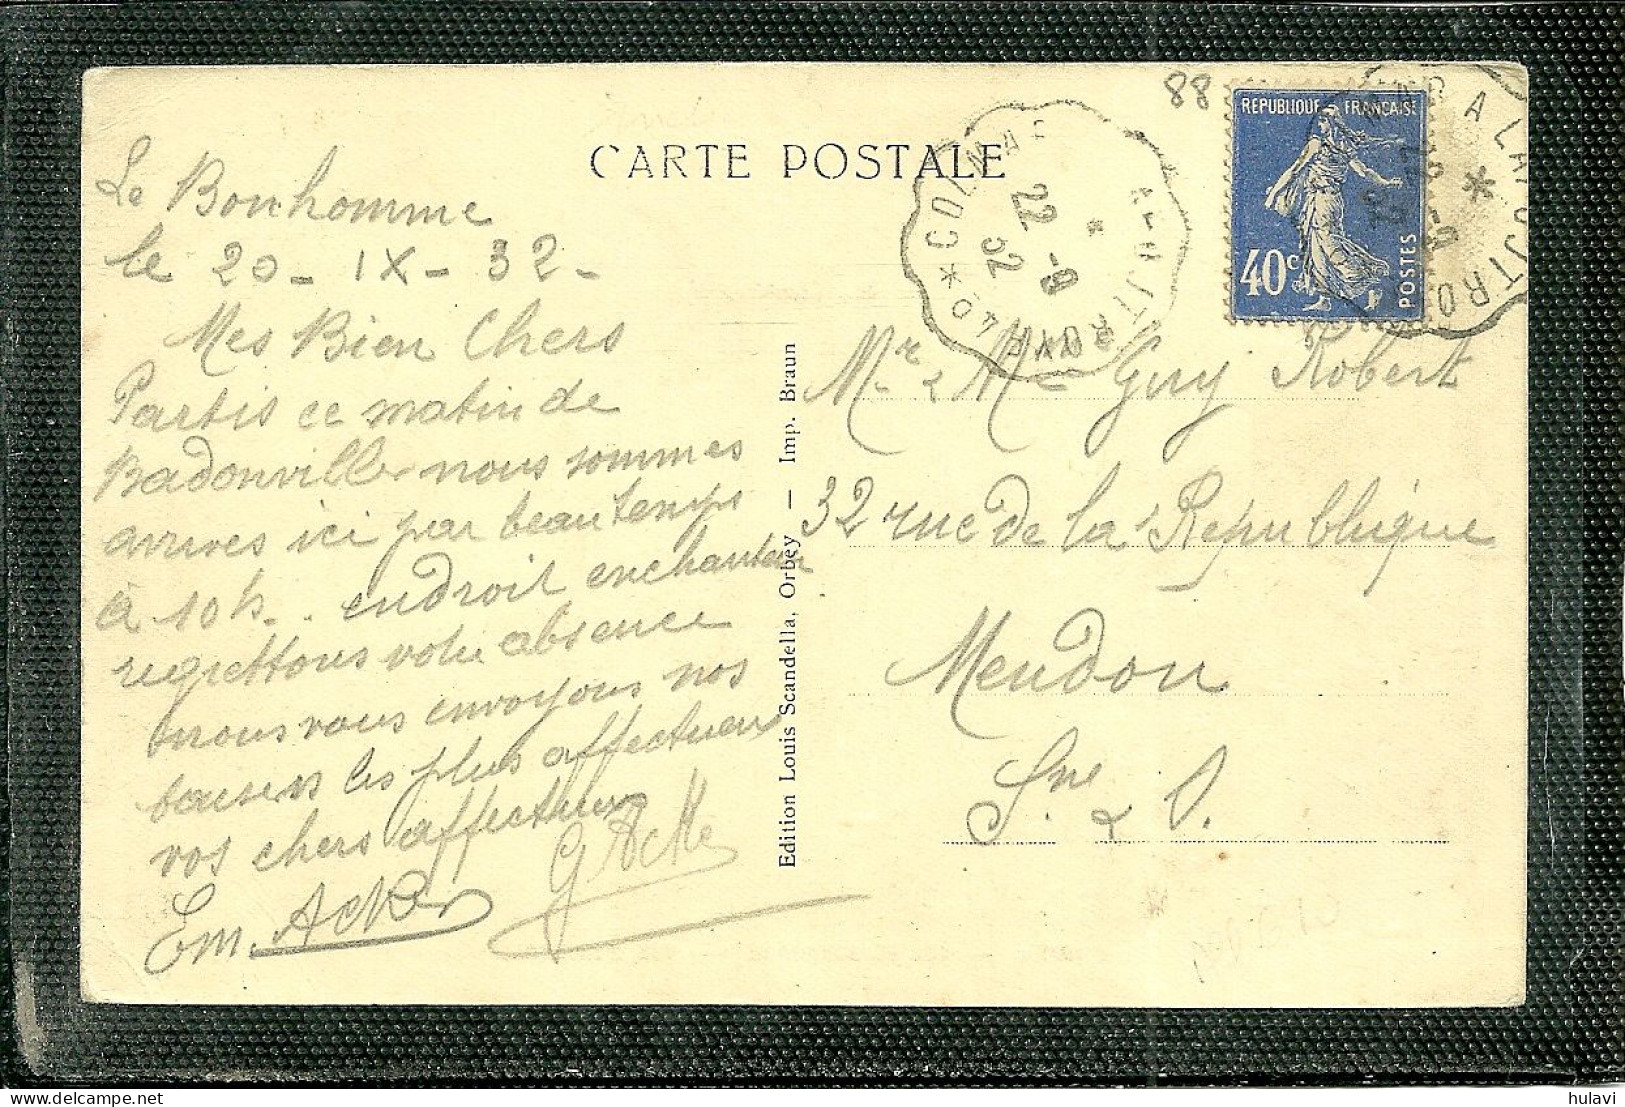 88
CARTE POSTALE
REPUBLIQUE FRANÇAISE
40c
POSTES
COLMAR A LAPOUTROYE
22 -9
32
COLMAR A LAPOUTROYE
22 -9
32
Le Bonhomme
le 20 - IX - 32 -
Mes Bien Chers
Partis ce matin de
Badonviller nous sommes
arrives ici par beau temps
à 10 h. . endroit enchanteur
regrettons votre absence
nous vous envoyons nos
baisers les plus affectueux
vos chers affectueux
Em. Acker
Edition Louis Scandella, Orbey — Imp. Braun
Mr & Me Guy Robert
32 rue de la République
Meudon
Sne & O.
hulavi